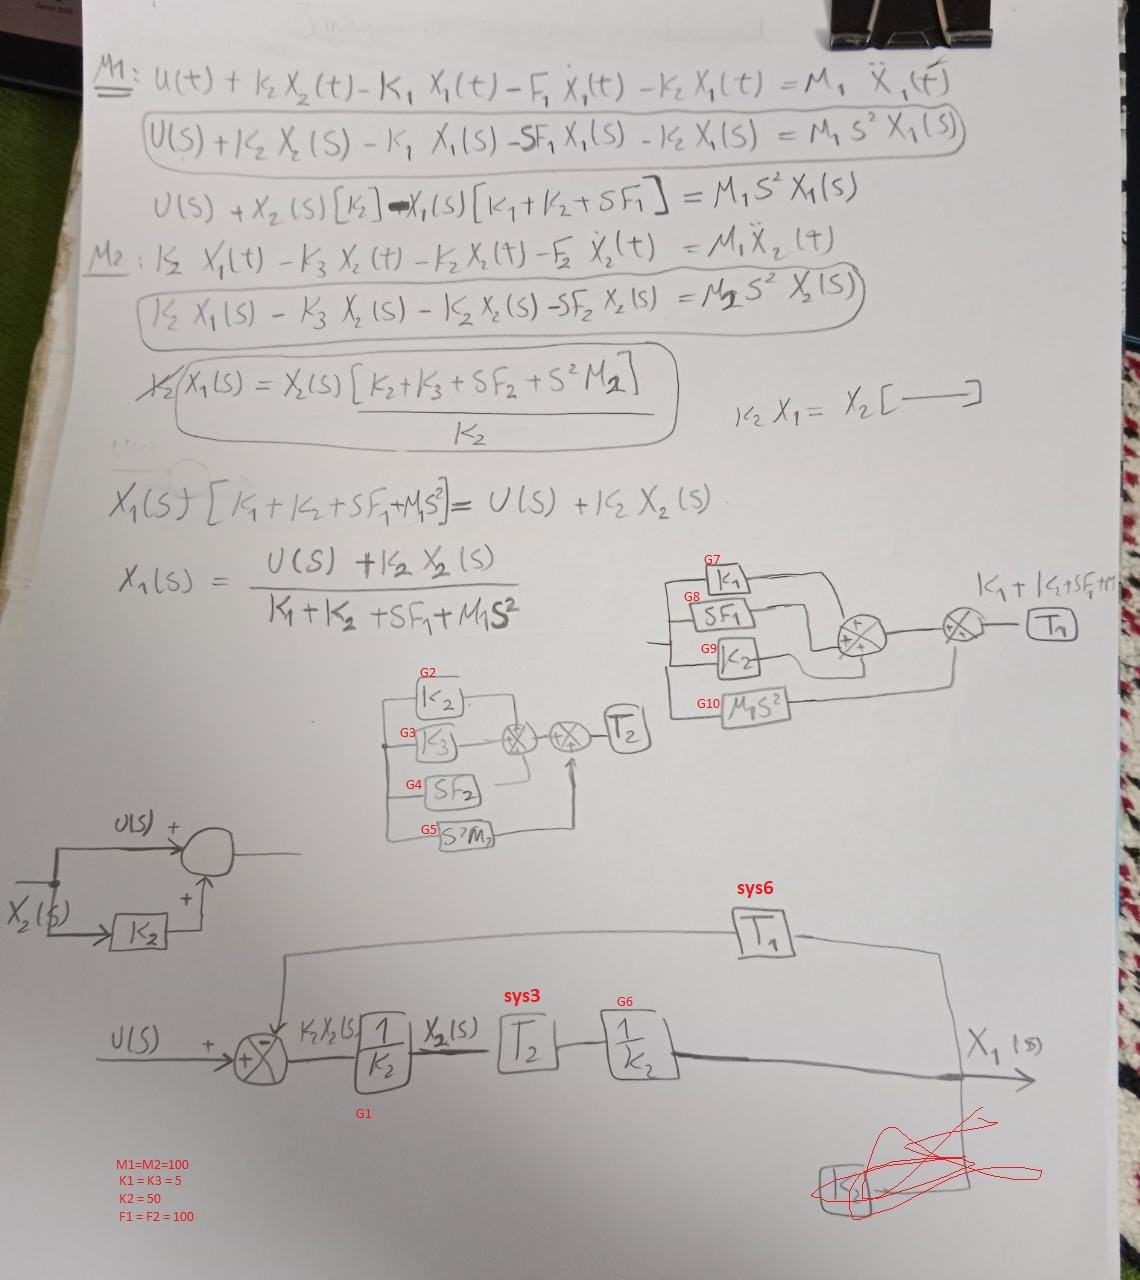 M1: U(t) + K2 X2(t) - K1 X1(t) - F1 Ẋ1(t) - K2 X1(t) = M1 Ẍ1(t)
U(S) + K2 X2(S) - K1 X1(S) - SF1 X1(S) - K2 X1(S) = M1 S² X1(S)
U(S) + X2(S)[K2] - X1(S)[K1+K2+SF1] = M1S² X1(S)
M2: K2 X1(t) - K3 X2(t) - K2 X2(t) - F2 Ẋ2(t) = M1 Ẍ2(t)
K2 X1(S) - K3 X2(S) - K2 X2(S) - SF2 X2(S) = M2 S² X2(S)
K2 X1(S) = X2(S) [K2+K3+SF2+S²M2]
K2
K2 X1 = X2 [—]
X1(S) [K1+K2+SF1+M1S²] = U(S) + K2 X2(S)
X1(S) = U(S) + K2 X2(S)
K1+K2+SF1+M1S²
G7
K1
K1+K2+SF1+M
G8
SF1
T1
G9
K2
G10
M1S²
G2
K2
G3
K3
T2
G4
SF2
G5
S²M2
U(S) +
X2(S)
+
K2
sys6
T1
U(S)
+
+
-
K2X2(S)
1
K2
G1
X2(S)
sys3
T2
G6
1
K2
X1(S)
K2
M1=M2=100
K1 = K3 = 5
K2 = 50
F1 = F2 = 100